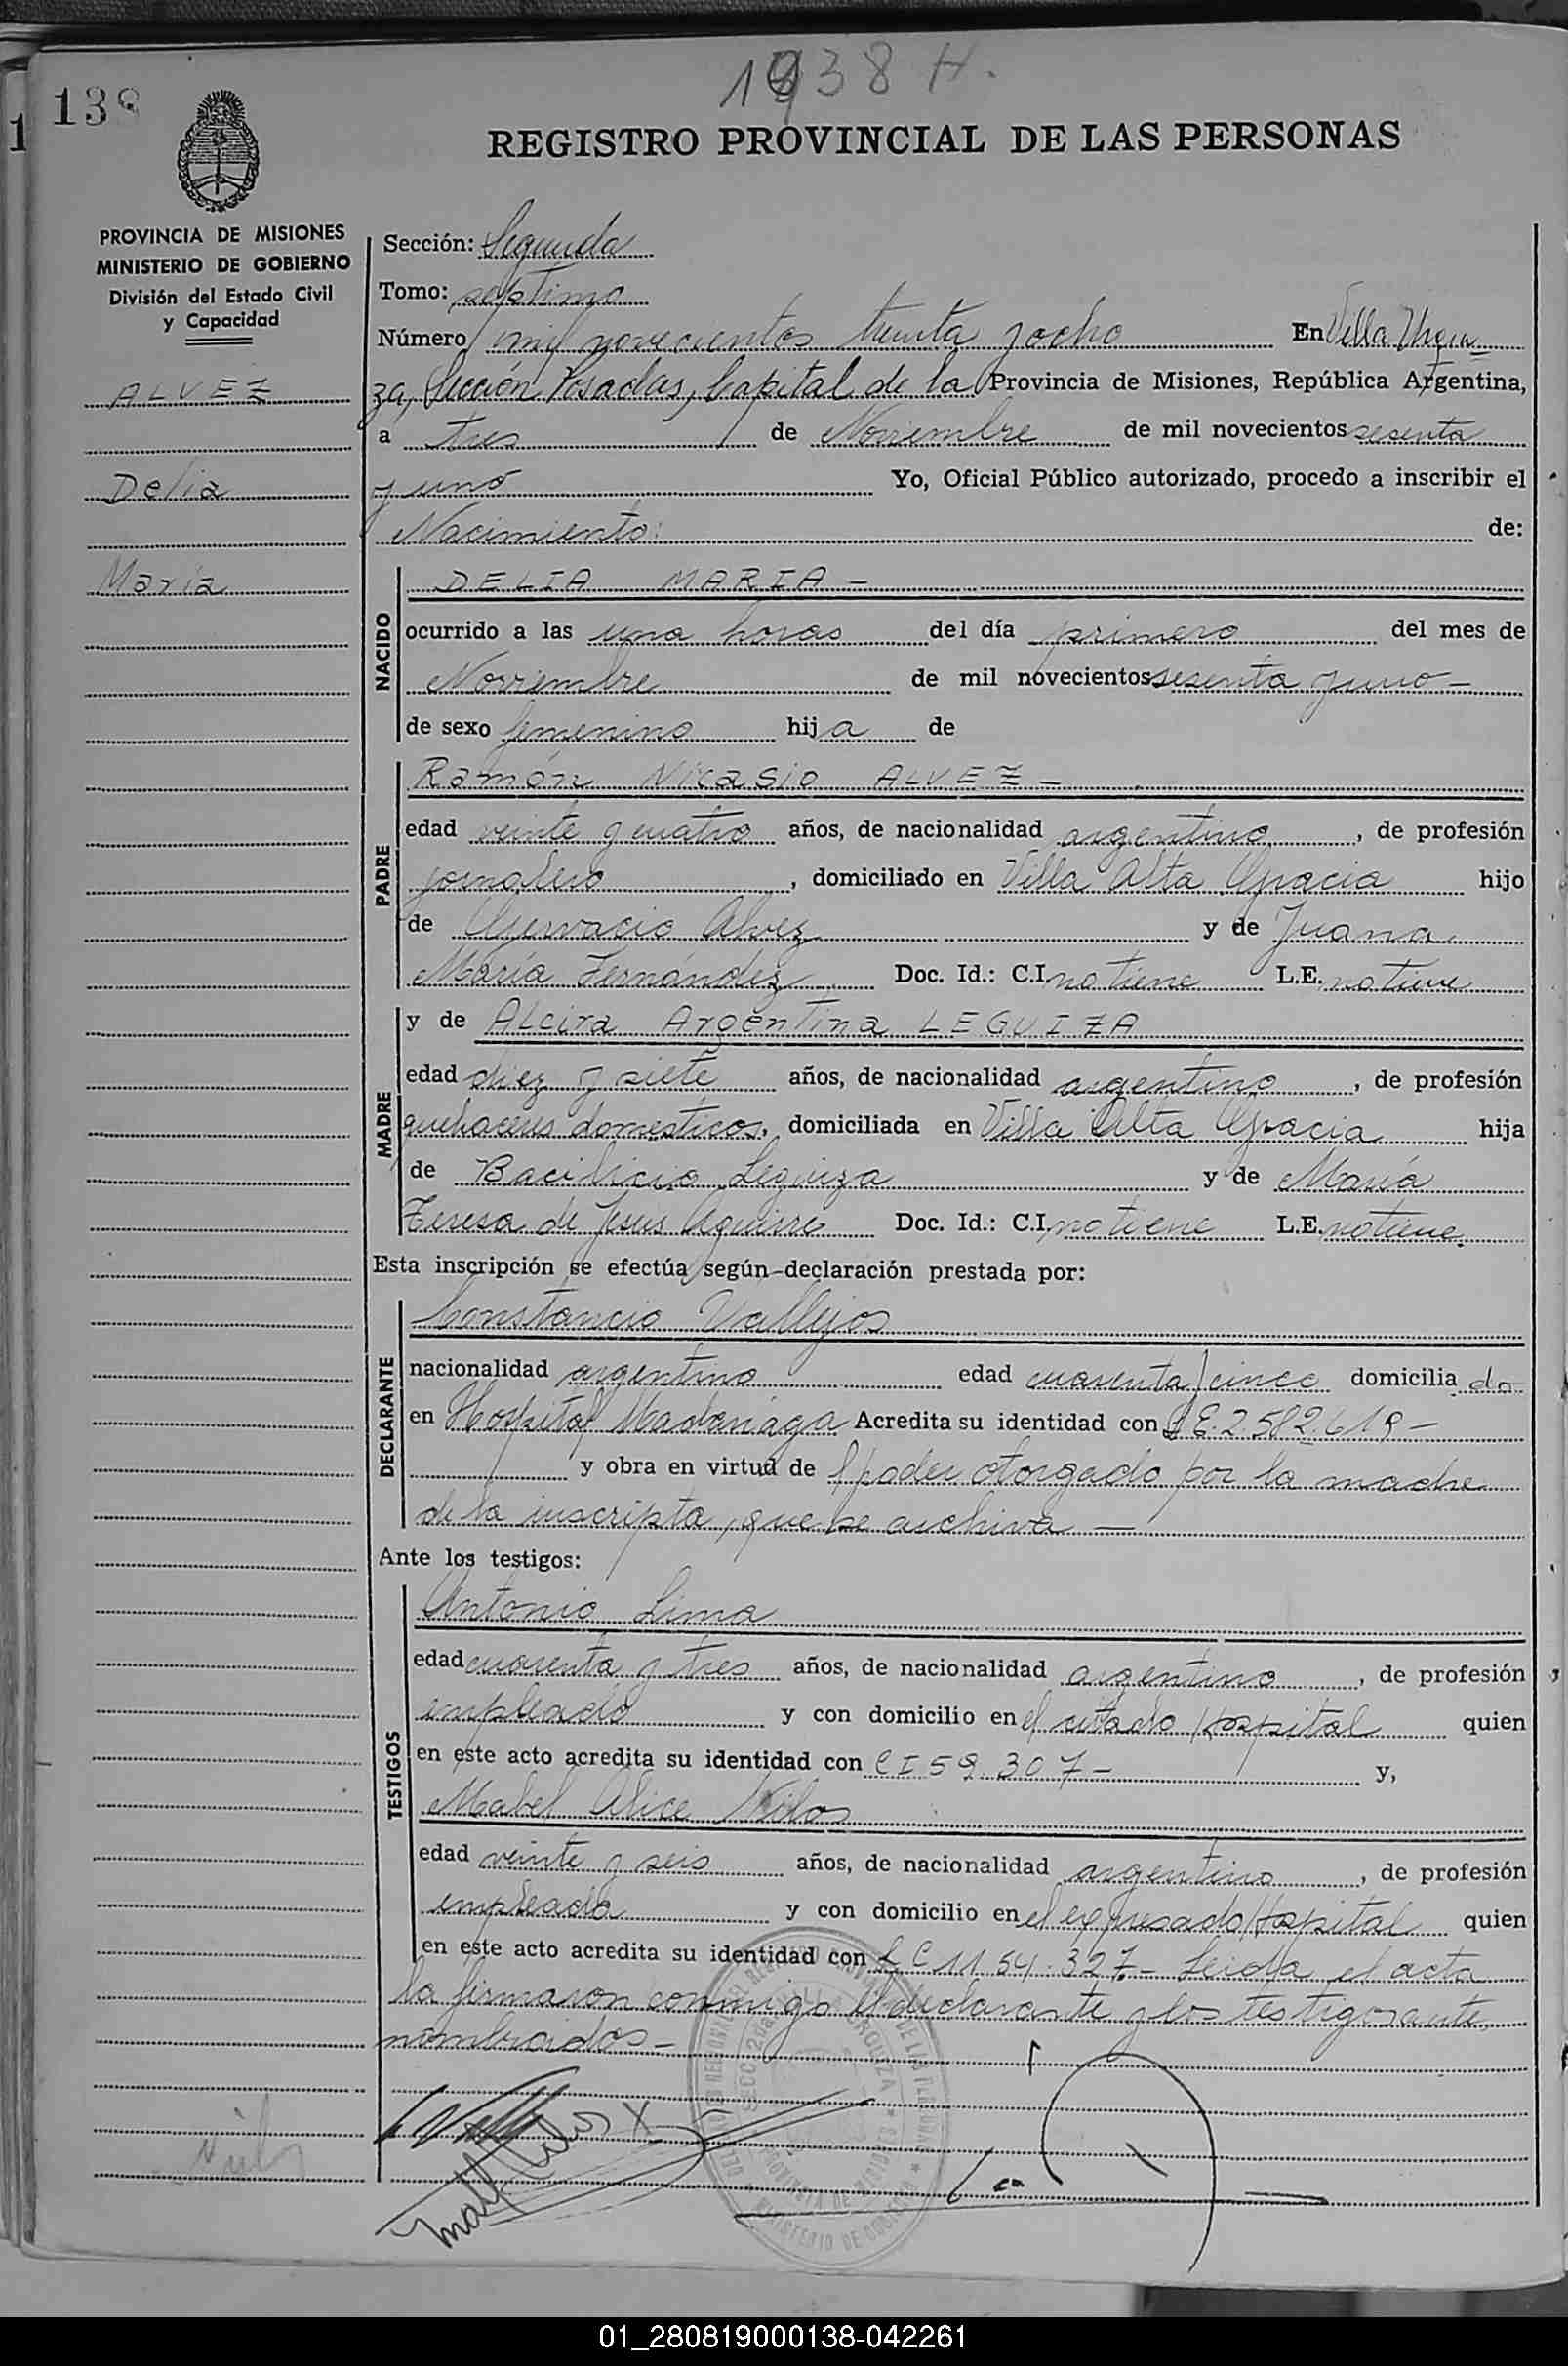 1938 H.
138
REGISTRO PROVINCIAL DE LAS PERSONAS
PROVINCIA DE MISIONES
MINISTERIO DE GOBIERNO
División del Estado Civil
y Capacidad
ALVEZ
Delia
María
Sección: Segunda
Tomo: séptimo
Número mil novecientos treinta y ocho En Villa Urqui
za, Sección Posadas, Capital de la Provincia de Misiones, República Argentina,
a tres de Noviembre de mil novecientos sesenta
y uno Yo, Oficial Público autorizado, procedo a inscribir el
Nacimiento: de:
NACIDO
DELIA MARIA -
ocurrido a las una horas del día primero del mes de
Noviembre de mil novecientos sesenta y uno -
de sexo femenino hija de
PADRE
Ramón Nicasio ALVEZ -
edad veinte y cuatro años, de nacionalidad argentino, de profesión
jornalero, domiciliado en Villa Alta Gracia hijo
de Gervacio Alvez y de Juana
María Fernández Doc. Id.: C.I. no tiene L.E. no tiene
MADRE
y de Alcira Argentina LEGUIZA
edad diez y siete años, de nacionalidad argentina, de profesión
quehaceres domésticos, domiciliada en Villa Alta Gracia hija
de Bacilicio Leguiza y de María
Teresa de Jesus Aguirre Doc. Id.: C.I. no tiene L.E. no tiene.
Esta inscripción se efectúa según declaración prestada por:
DECLARANTE
Constancio Vallejos
nacionalidad argentino edad cuarenta y cinco domiciliado
en Hospital Madariaga Acredita su identidad con L.E. 2.582.619 -
y obra en virtud de el poder otorgado por la madre
de la inscripta, que se archiva -
Ante los testigos:
TESTIGOS
Antonio Lima
edad cuarenta y tres años, de nacionalidad argentino, de profesión
empleado y con domicilio en el citado Hospital quien
en este acto acredita su identidad con C I 59.307 - y,
Mabel Alice
edad veinte y seis años, de nacionalidad argentina, de profesión
empleada y con domicilio en el expresado Hospital quien
en este acto acredita su identidad con L C 1154.327 - Leida el acta
la firmaron conmigo el declarante y los testigos ante
nombrados -
01_280819000138-042261